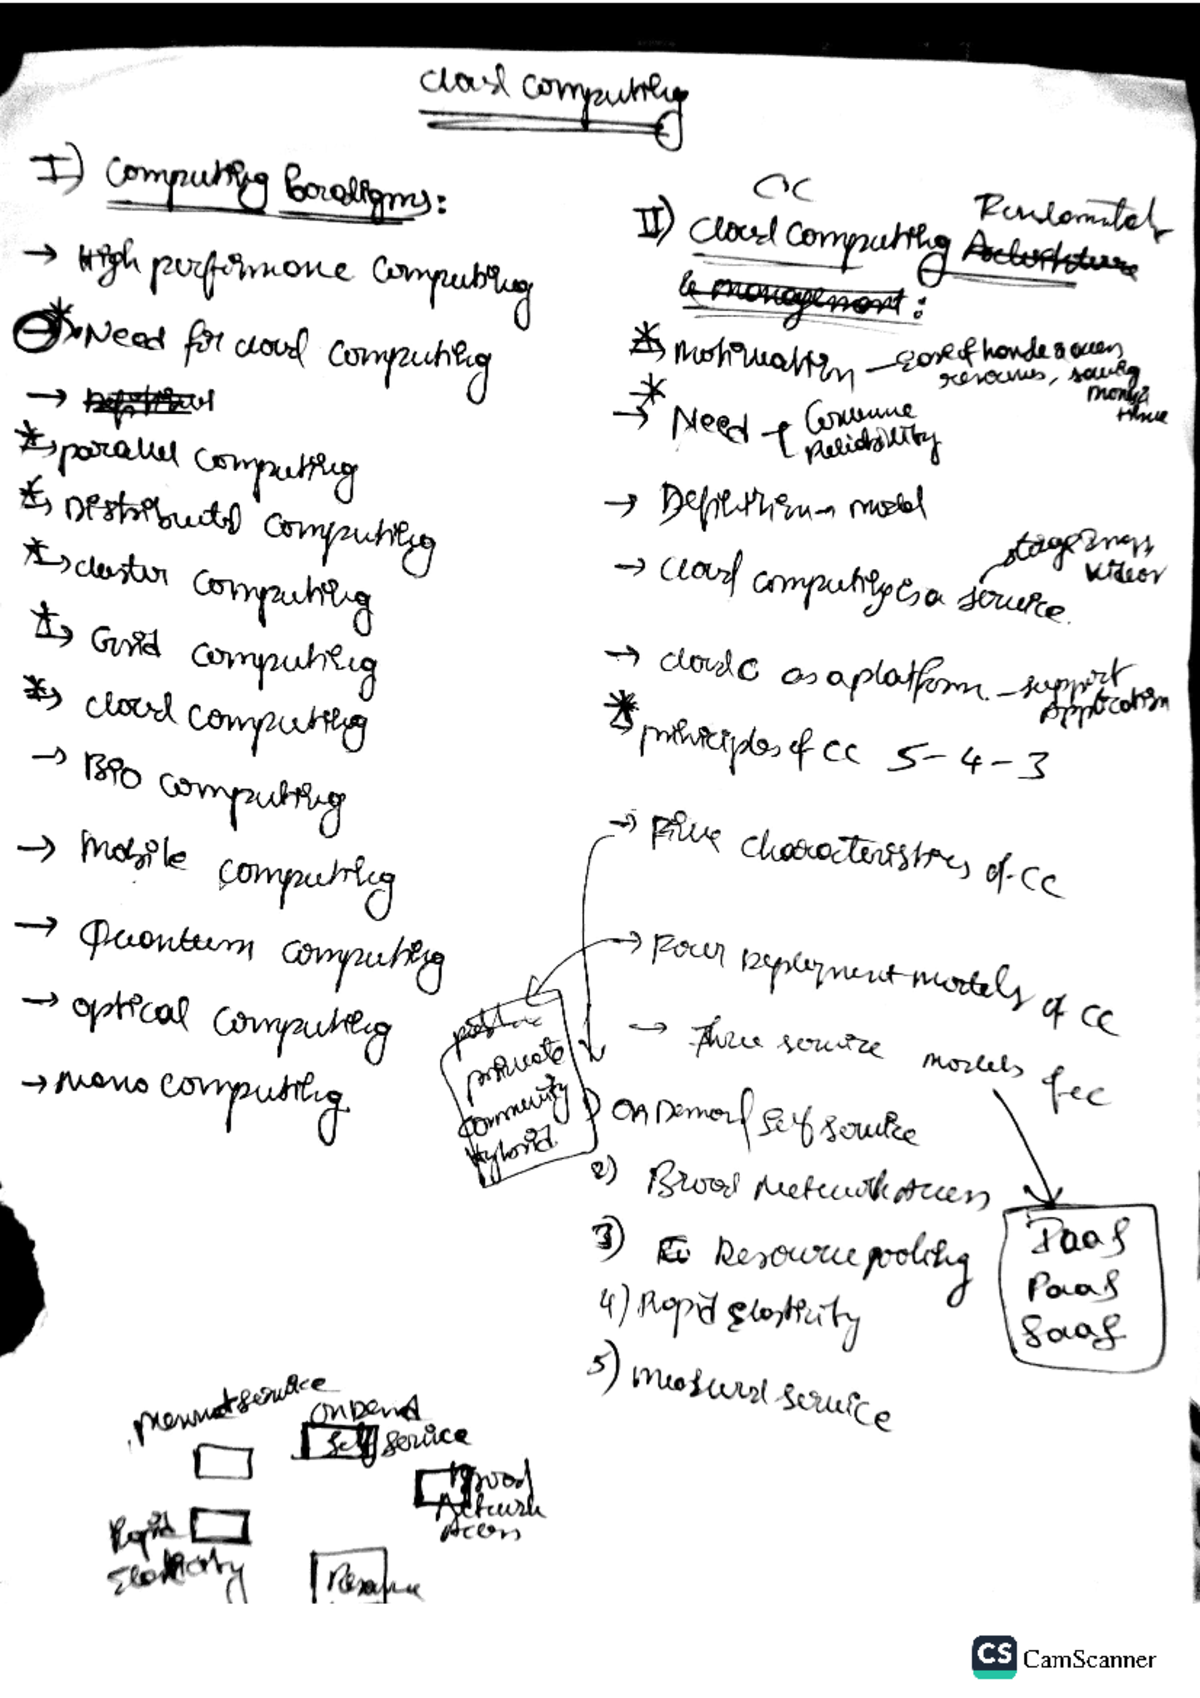 Cloud Computing
I) Computing Paradigms:
→ High performance computing
→ Need for cloud computing
→
→ parallel computing
→ Distributed computing
→ cluster computing
→ Grid computing
→ cloud computing
→ BIO computing
→ Mobile computing
→ Quantum computing
→ optical computing
→ nano computing
CC
II) Cloud Computing Fundamentals
Architecture
& management :
→ Motivation —
resources, saving
money &
time
→ Need
Reliability
→ Definition → model
→ Cloud computing is a service
videos
→ cloud C as a platform — support
Application
→ principles of CC 5-4-3
→ Five characteristics of CC
→ Four Deployment models of CC
→ Three service models of CC
private
community
Hybrid
1) On Demand Self Service
2) Broad Network Access
3) Resource pooling
4) Rapid Elasticity
5) Measured service
IaaS
PaaS
SaaS
service
On Demand
Self Service
Broad
Network
Access
Rapid
Elasticity
Resource
CS CamScanner